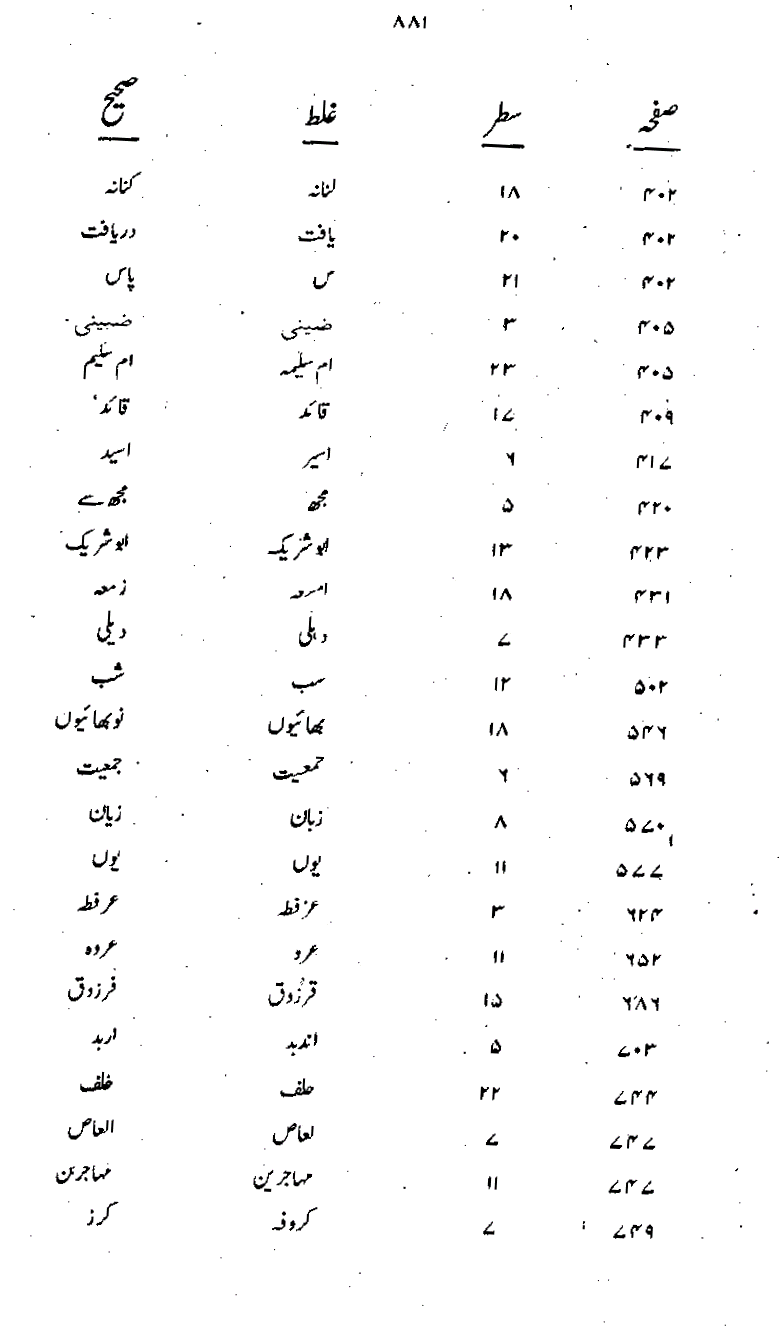 ۸۸۱
صفحہ سطر غلط صحیح
۴۰۲ ۱۸ لنانہ کنانہ
۴۰۲ ۲۰ یافت دریافت
۴۰۲ ۲۱ س پاس
۴۰۵ ۳ ضینی ضبینی
۴۰۵ ۲۳ ام سلیمہ ام سلیم
۴۰۹ ۱۷ قائد قائد
۴۱۷ ۶ اسیر اسید
۴۲۰ ۵ مجھ مجھ سے
۴۲۳ ۱۳ ابوشزیک ابوشریک
۴۳۱ ۱۸ امرعہ زمعہ
۴۳۳ ۷ دہلی دیلی
۵۰۲ ۱۲ سب شب
۵۴۶ ۱۸ بھائیوں نوبھائیوں
۵۶۹ ۶ حمعیت جمعیت
۵۷۰ ۸ زبان زیان
۵۷۷ ۱۱ یوں یوں
۶۲۴ ۳ عزفطہ عرفطہ
۶۵۲ ۱۱ عرد عروہ
۶۸۶ ۱۵ قرزوق فرزوق
۷۰۳ ۵ اندبد اربد
۷۴۴ ۲۲ حلف خلف
۷۴۷ ۷ لعاص العاص
۷۴۷ ۱۱ مہاجرین مہاجرین
۷۴۹ ۷ کروفہ کرز